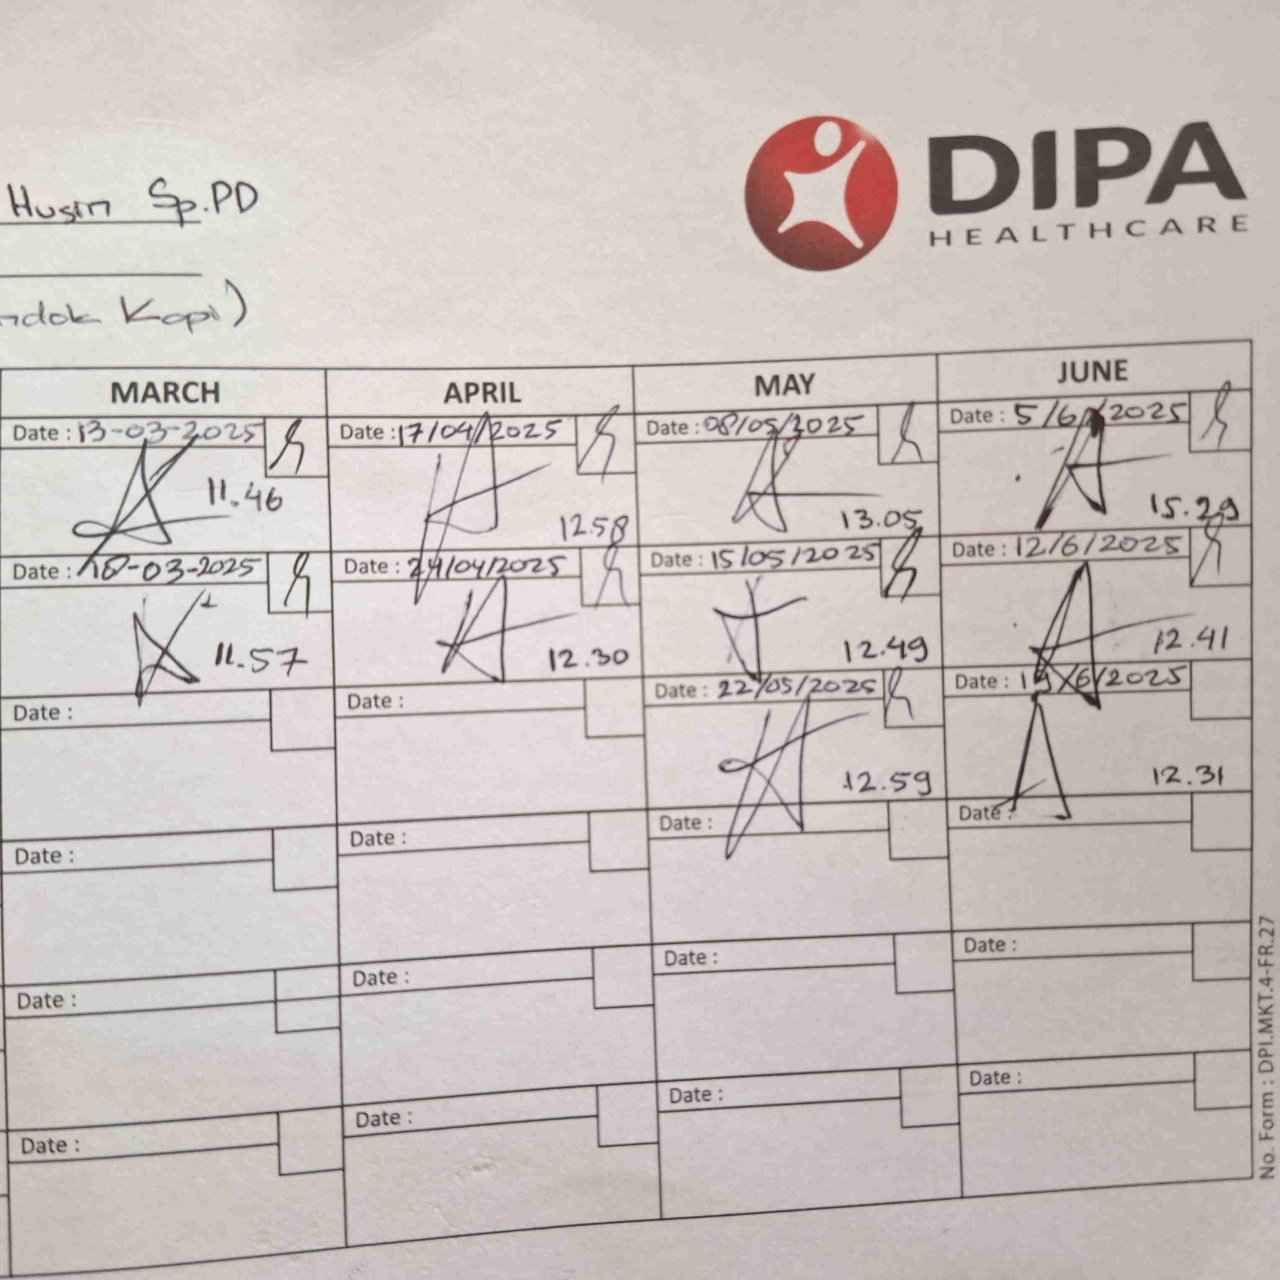 DIPA
HEALTHCARE
Husin Sp.PD
Kopi)
MARCH APRIL MAY JUNE
Date : 13-03-2025 Date : 17/04/2025 Date : 08/05/2025 Date : 5/6/2025
11.46 12.58 13.05 15.29
Date : 18-03-2025 Date : 24/04/2025 Date : 15/05/2025 Date : 12/6/2025
11.57 12.30 12.49 12.41
Date : Date : Date : 22/05/2025 Date : 19/6/2025
12.59 12.31
Date : Date : Date : Date :
Date : Date : Date : Date :
Date : Date : Date : Date :
No. Form : DPI.MKT.4-FR.27